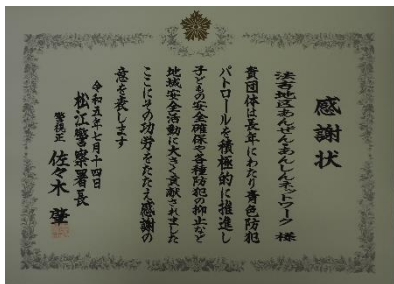 感謝状
法吉地区あんぜんあんしんネットワーク 様
貴団体は長年にわたり青色防犯
パトロールを積極的に推進し
子どもの安全確保や各種防犯の抑止など
地域安全活動に大きく貢献されました
ここにその功労をたたえ感謝の
意を表します
令和五年七月十四日
松江警察署長
警視正 佐々木 肇